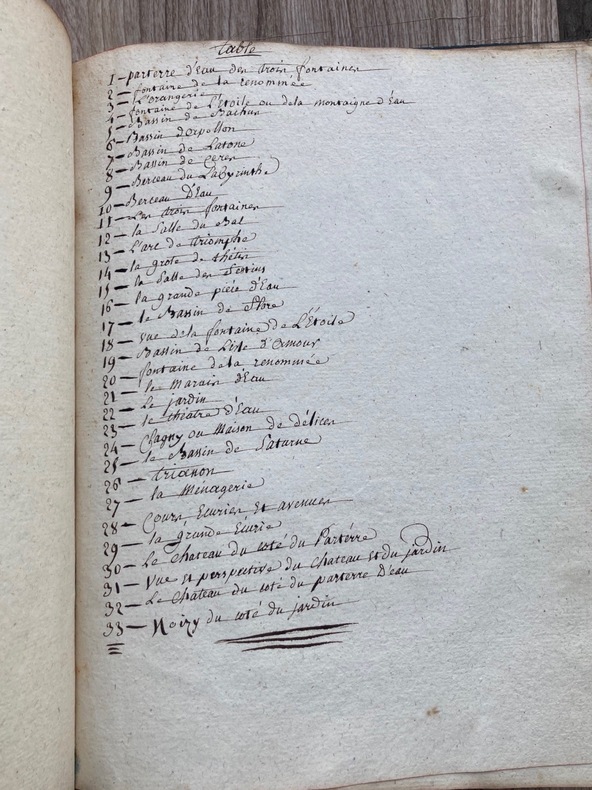 table
1 – parterre d'Eau des trois fontaines
2 – fontaine de la renommée
3 – L'orangerie
4 – fontaine de L'Étoile ou dela montaigne d'Eau
5 – Bassin de Bachus
6 – Bassin d'apollon
7 – Bassin de Latone
8 – Bassin de Ceres
9 – Berceau du Labyrinthe
10 – Berceau D'Eau
11 – Les trois fontaines
12 – la Salle du Bal
13 – L'arc de triomphe
14 – la grote de thétis
15 – la Salle des festins
16 – la grande piéce d'Eau
17 – le Bassin de flore
18 – vue dela fontaine de L'Étoile
19 – Bassin de L'isle d'amour
20 – fontaine dela renommée
21 – le Marais d'Eau
22 – Le jardin
23 – le théatre d'Eau
24 – Clagny ou Maison de délices
25 – le Bassin de Saturne
26 – trianon
27 – la Ménagerie
28 – Cours Ecuries Et avenues
29 – la grande Ecurie
30 – Le Chateau du coté du Partérre
31 – vue et perspective du Chateau Et du jardin
32 – Le Chateau du coté du parterre D'eau
33 – Noizy du coté du jardin